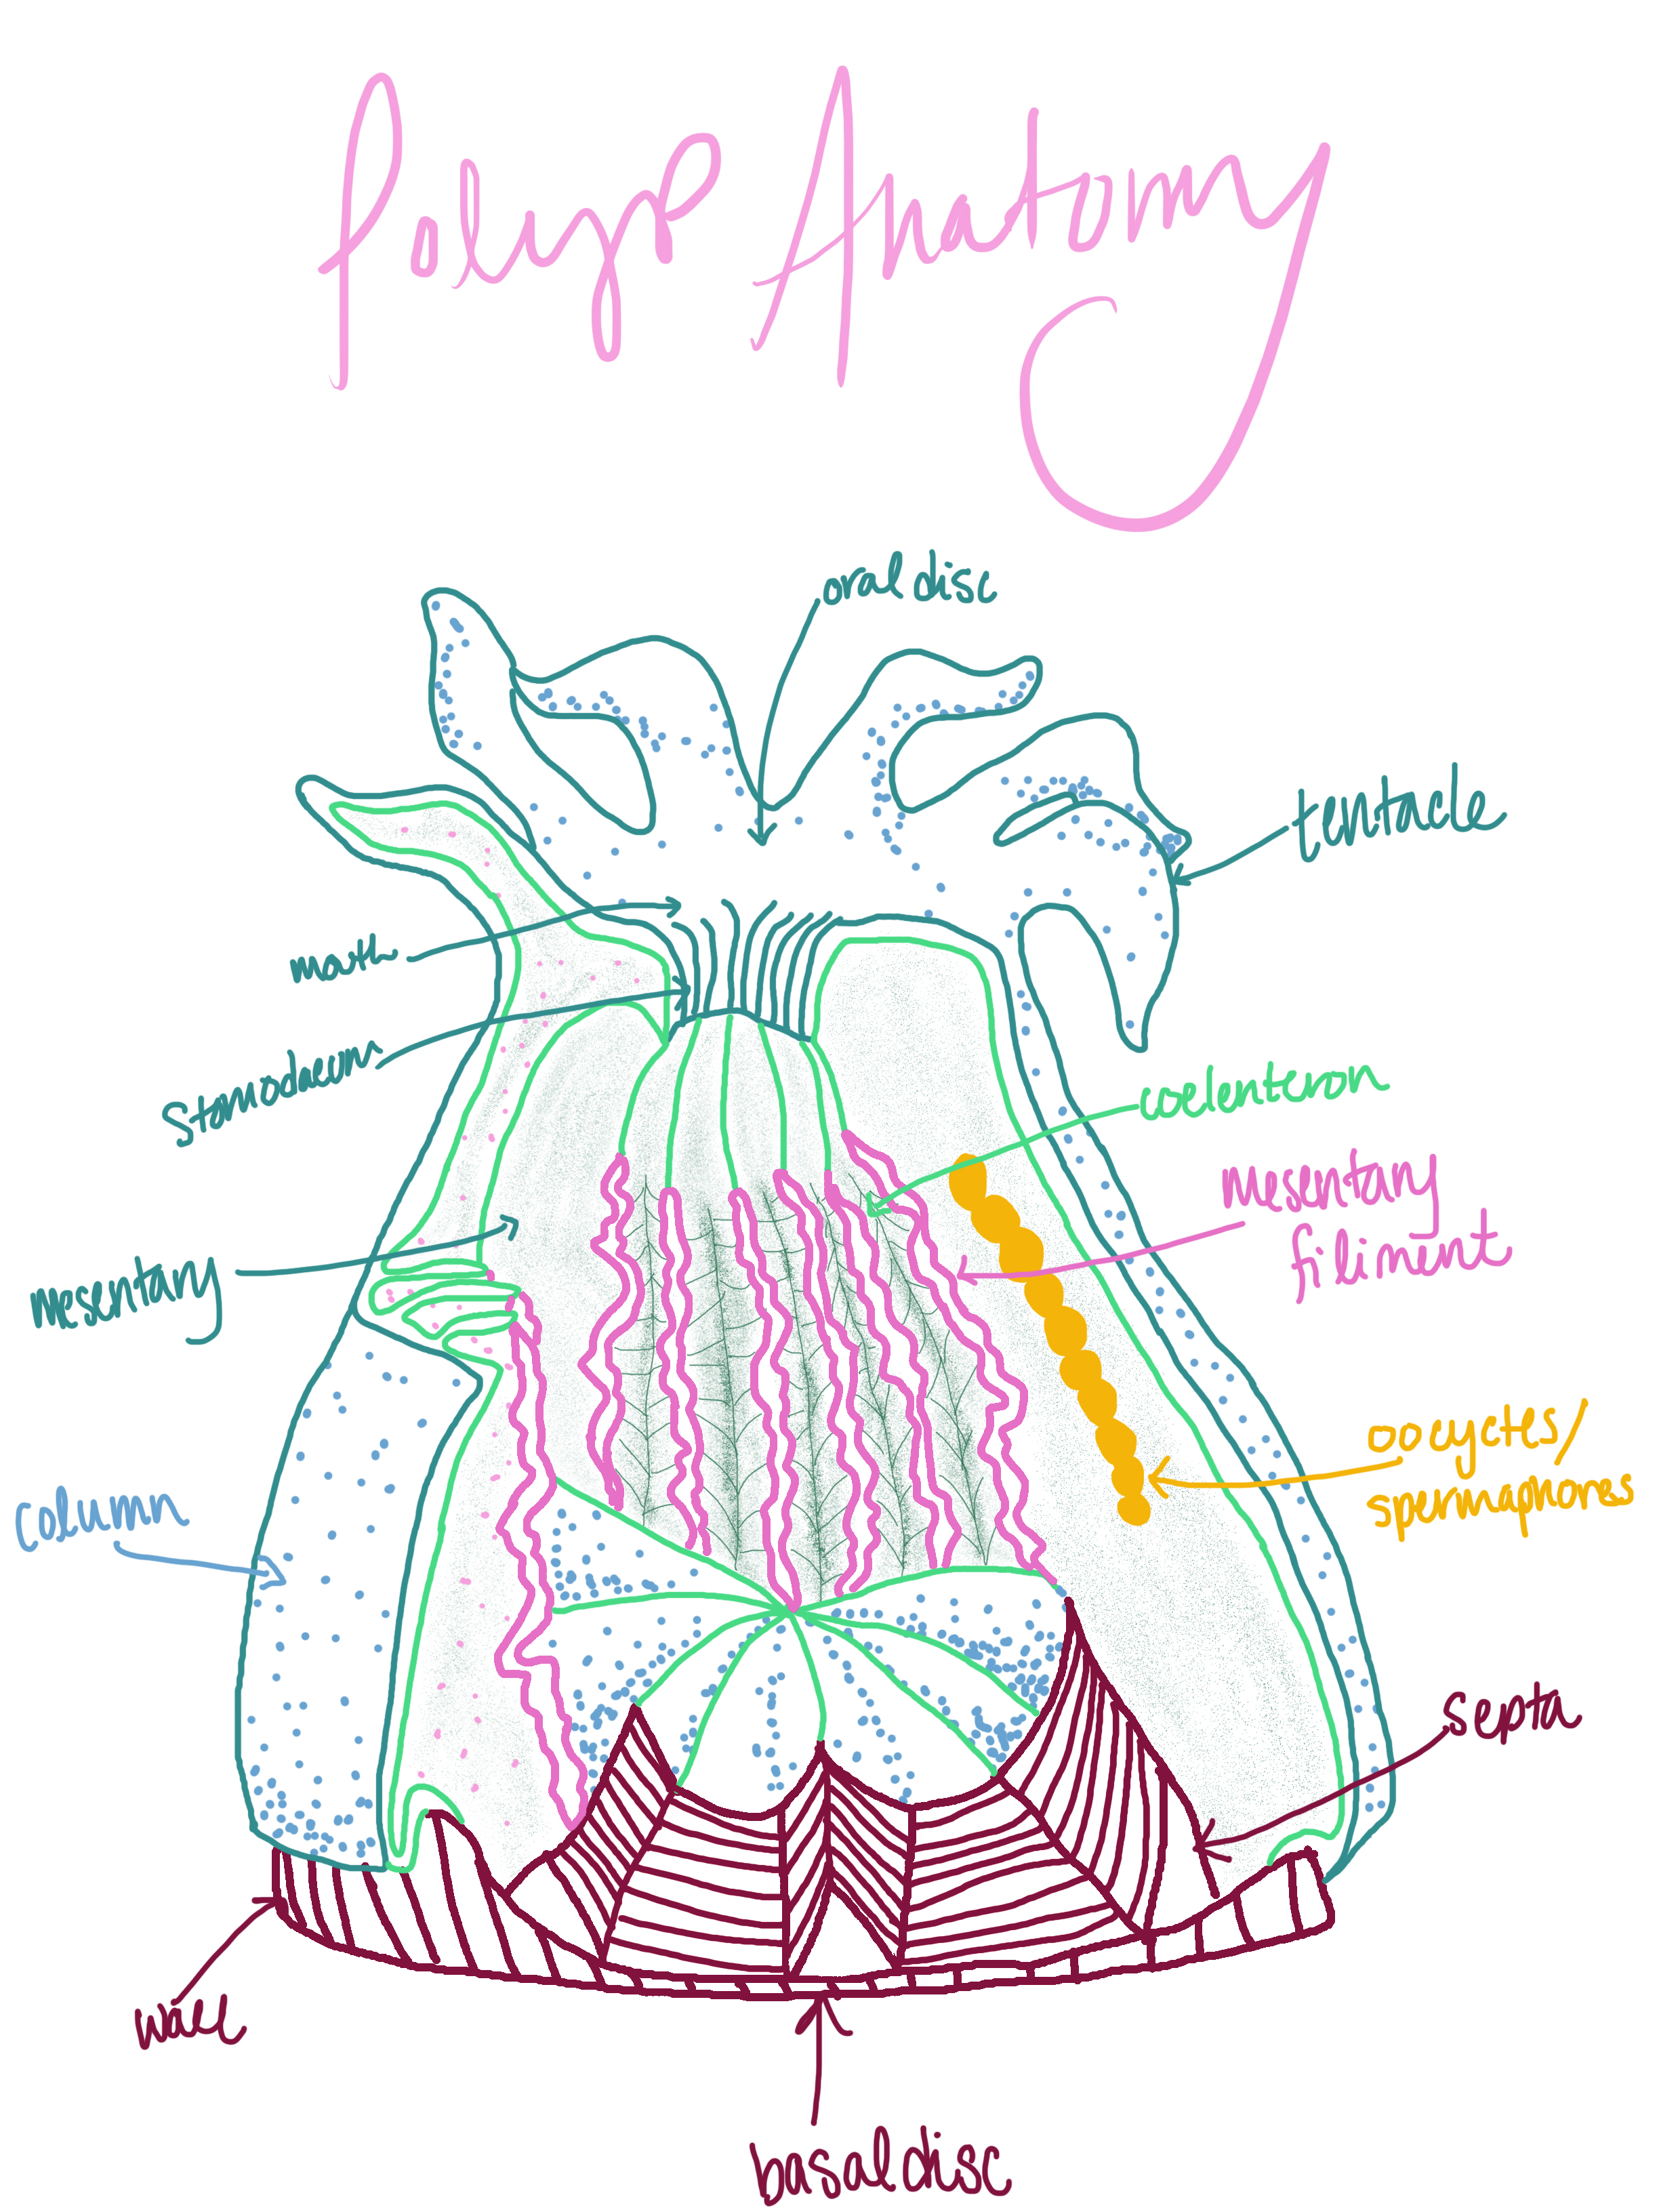 Polyp Anatomy
oral disc
tentacle
mouth
stomodaeum
coelenteron
mesentary
filiment
mesentary
oocyctes/
spermaphores
column
septa
wall
basal disc